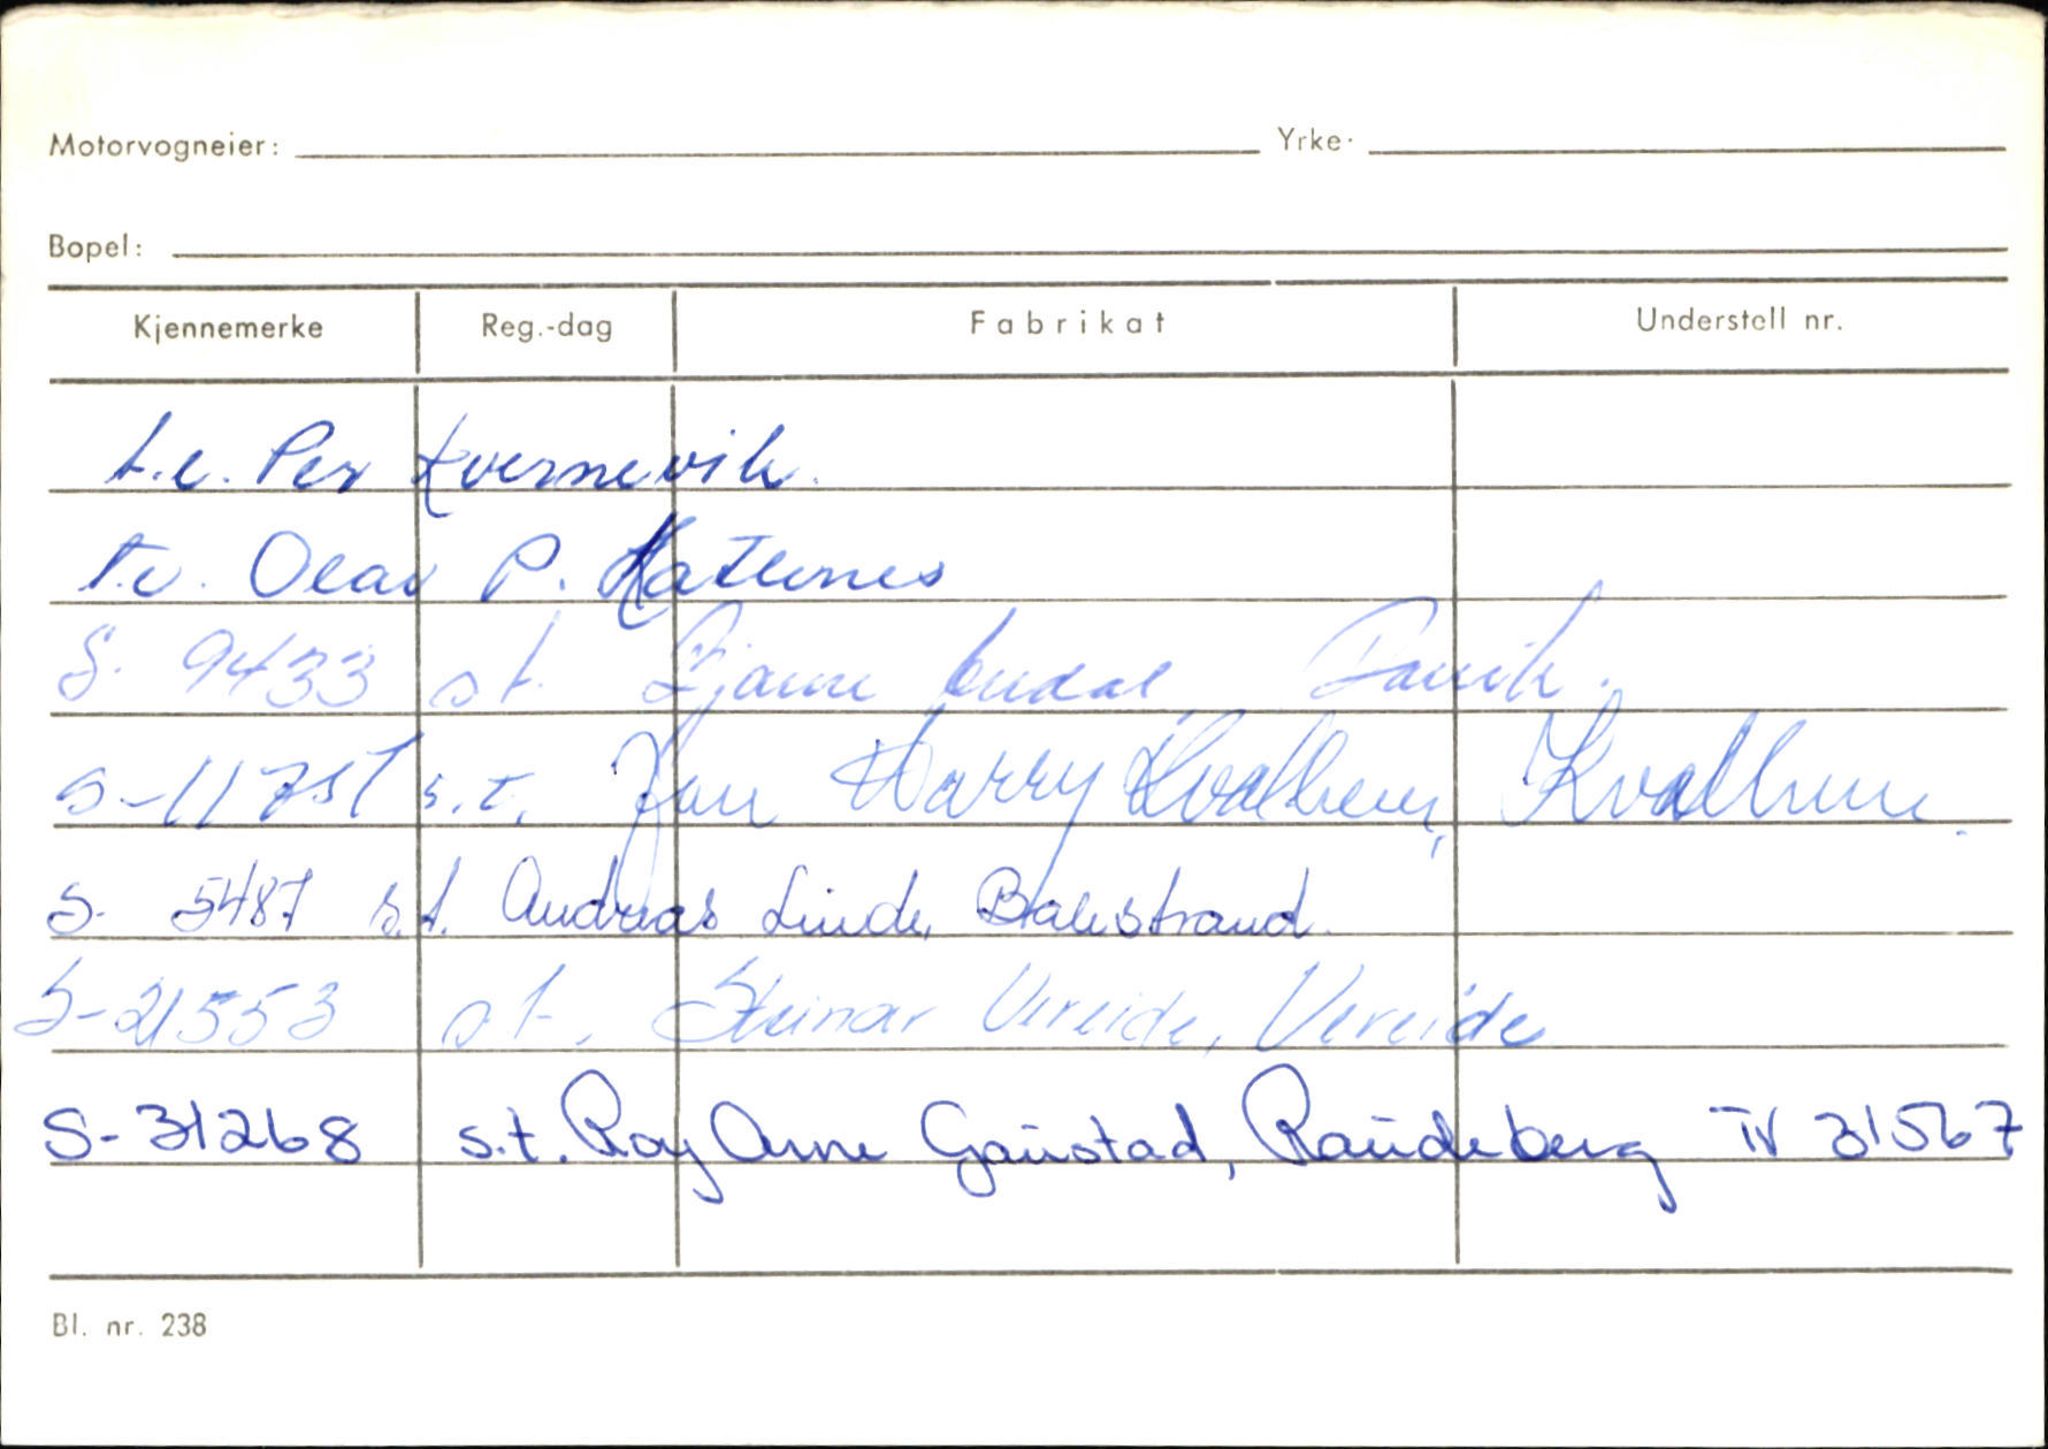 Motorvogneier: Yrke·
Bopel:
Kjennemerke Reg.-dag Fabrikat Understell nr.
t.e. Per Kvernevik.
t.e. Olav P.
S. 9433 s.t. Davik.
S-11751 s.t. Jan Harry Kvalheim, Kvalheim.
S. 5487 s.t. Andreas Linde, Balestrand.
S-21553 s.t. Steinar Vereide, Vereide
S-31268 s.t. Roy Arne Gaustad, Raudeberg TV 31567
Bl. nr. 238